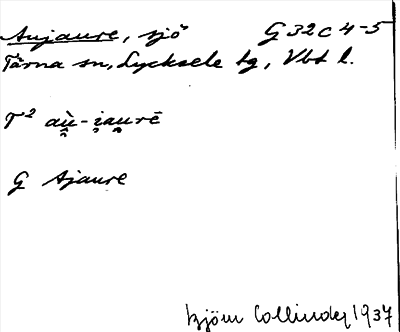 Aujaure, sjö G 32 c 4-5
Tärna sn, Lycksele lg, Vbt l.
T² aù̯-i̯au̯rē
G Ajaure
Björn Collinder 1937